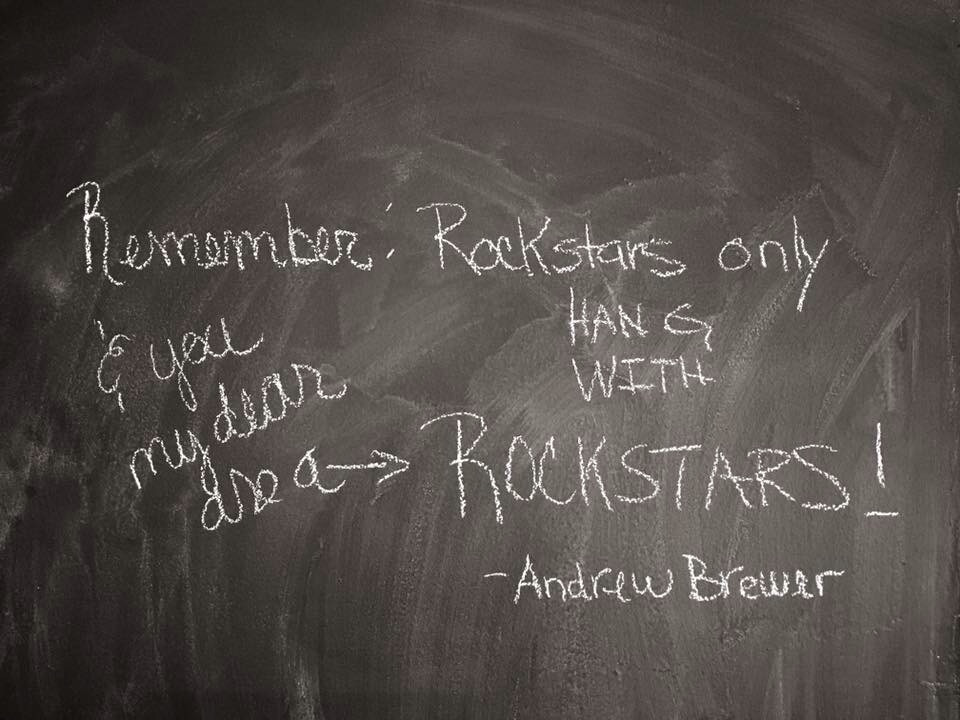 Remember: Rockstars only
HANG
WITH
ROCKSTARS!
& you
my dear
are a →
-Andrew Brewer